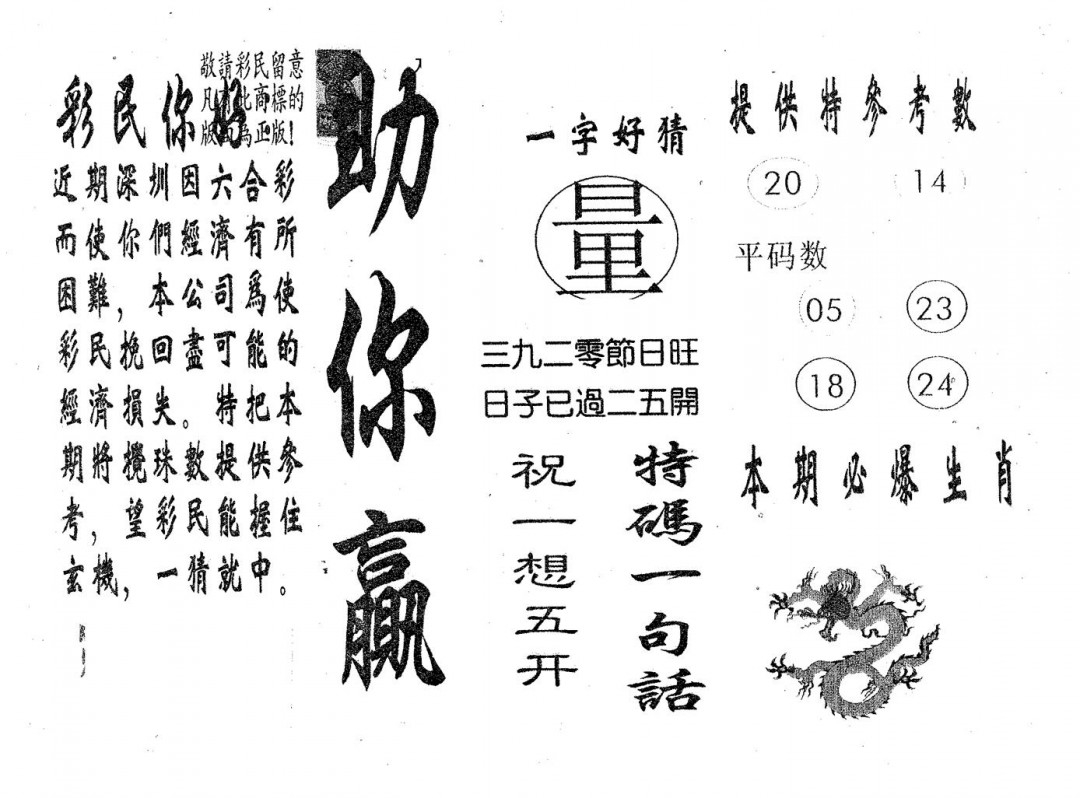 敬請彩民留意
凡此商標的
版為正版！
彩民你好
近期深圳因六合彩
而使你們經濟有所
困難，本公司爲使
彩民挽回盡可能的
經濟損失。特把本
期將攪珠數提供參
考，望彩民能握住
玄機，一猜就中。
助你贏
一字好猜
量
三九二零節日旺
日子已過二五開
特碼一句話
祝一想五开
提供特參考數
20 14
平码数
05 23
18 24
本期必爆生肖